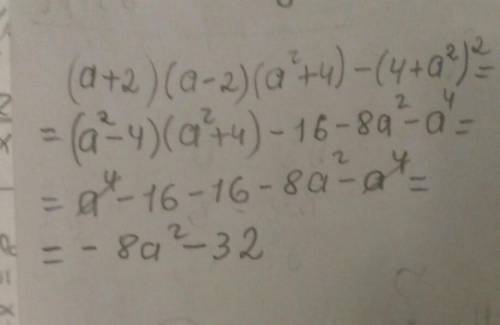 (a+2)(a-2)(a²+4)-(4+a²)²=
=(a²-4)(a²+4)-16-8a²-a⁴=
=a⁴-16-16-8a²-a⁴=
=-8a²-32